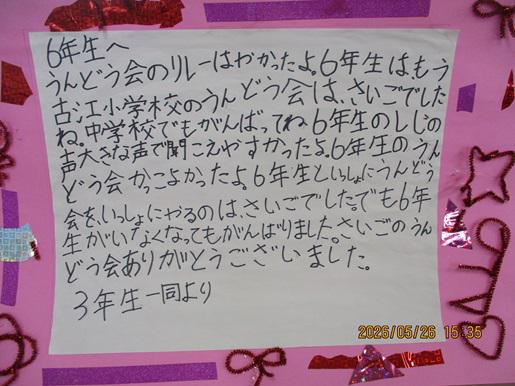 6年生へ
うんどう会のリレーはやかったよ。6年生はもう
古江小学校のうんどう会は、さいごでした
ね。中学校でもがんばってね。6年生のしじの
声大きな声で聞こえやすかったよ。6年生のうん
どう会かっこよかったよ。6年生といっしょにうんどう
会を、いっしょにやるのは、さいごでした。でも6年
生がいなくなってもがんばりました。さいごのうん
どう会ありがとうございました。
3年生一同より
2026/05/26 15:35